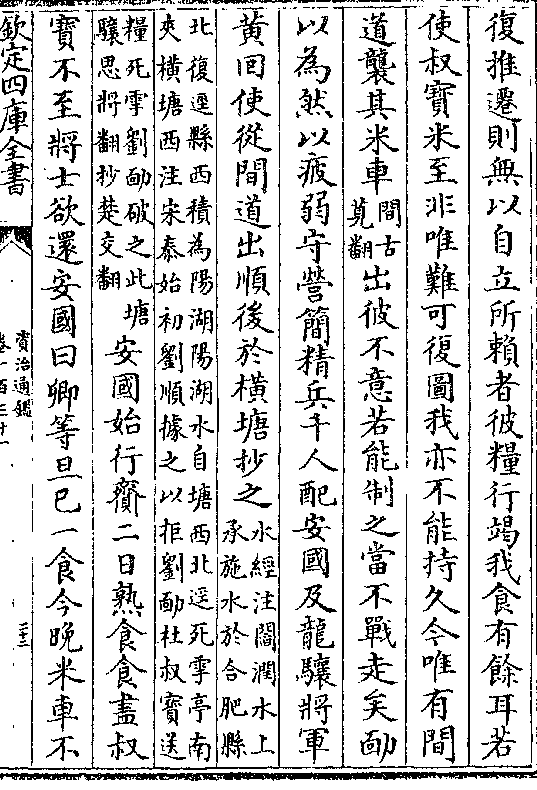 復推遷則無以自立所賴者彼糧行竭我食有餘耳若
使叔寶米至非唯難可復圖我亦不能持久今唯有間
道襲其米車間古莧翻出彼不意若能制之當不戰走矣勔
以為然以疲弱守營簡精兵千人配安國及龍驤將軍
黄回使從間道出順後於橫塘抄之水經注閻潤水上承施水於合肥縣
北復逕縣西積為陽湖陽湖水自塘西北逕死雩亭南
夾橫塘西注宋泰始初劉順據之以拒劉勔杜叔寶送
糧死雩劉勔破之此塘
驤思將翻抄楚交翻
安國始行齎二日熟食食盡叔
寶不至將士欲還安國曰卿等旦已一食今晚米車不
欽定四庫全書
資治通鑑
卷一百三十一
三三